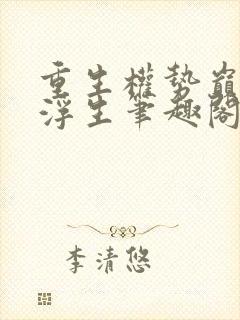 重生權勢巔
浮生筆趣閣
李清悠